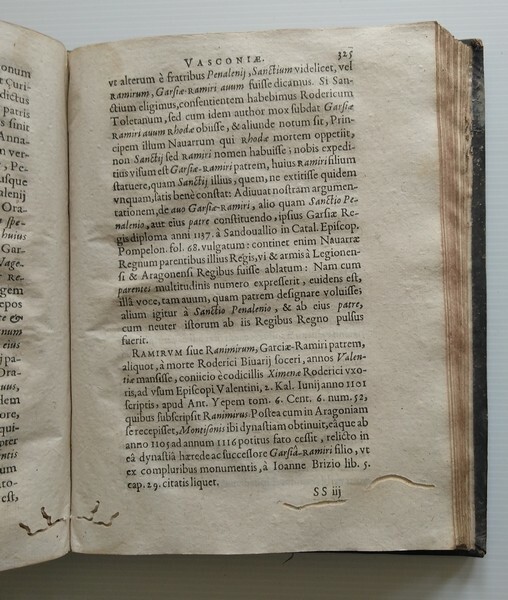 onum
t Çuri-
dictus
patris
is sinit
Anna-
m ver-
, Pe-
usque
alenij
Ora-
spe-
huius
Gar-
Vage-
Re-
gem
epos
re &
num
eius
j pa-
Ora-
uus,
dem
or-
qui-
pter
entis
ato-
est,
VASCONIÆ. 325
vt alterum è fratribus Penalenij, Sanctium videlicet, vel
Ramirum, Garsiæ-Ramiri auum fuisse dicamus. Si San-
ctium eligimus, consentientem habebimus Rodericum
Toletanum, sed cum idem author mox subdat Garsiæ
Ramiri auum Rhodæ obiisse, & aliunde notum sit, Prin-
cipem illum Nauarrum qui Rhodæ mortem oppetiit,
non Sanctij sed Ramiri nomen habuisse; nobis expedi-
tius visum est Garsiæ-Ramiri patrem, huius Ramiri filium
statuere, quam Sanctij illius; quem, ne extitisse quidem
vnquam, satis benè constat: Adiuuat nostram argumen-
tationem, de auo Garsiæ-Ramiri, alio quam Sanctio Pe-
nalenio, aut eius patre constituendo, ipsius Garsiæ Re-
gis diploma anni 1137. à Sandouallio in Catal. Episcop.
Pompelon. fol. 68. vulgatum: continet enim Nauarræ
Regnum parentibus illius Regis, vi & armis à Legionen-
si & Aragonensi Regibus fuisse ablatum: Nam cum
parentes multitudinis numero expresserit, euidens est,
illâ voce, tam auum, quam patrem designare voluisse;
alium igitur à Sanctio Penalenio, & ab eius patre,
cum neuter istorum ab iis Regibus Regno pulsus
fuerit.
RAMIRVM siue Ranimirum, Garciæ-Ramiri patrem,
aliquot, à morte Roderici Biuarij soceri, annos Valen-
tiæ mansisse, coniicio è codicillis Ximenæ Roderici vxo-
ris, ad vsum Episcopi Valentini, 2. Kal. Iunij anno 1101
scriptis, apud Ant. Yepem tom. 6. Cent. 6. num. 52,
quibus subscripsit Ranimirus Postea cum in Aragoniam
se recepisset, Montisonis ibi dynastiam obtinuit, eâque ab
anno 1105 ad annum 1116 potitus fato cessit, relicto in
eâ dynastiâ hærede ac successore Garsiâ-Ramiri filio, vt
ex compluribus monumentis, à Ioanne Brizio lib. 5.
cap. 29. citatis liquet.
SS iij